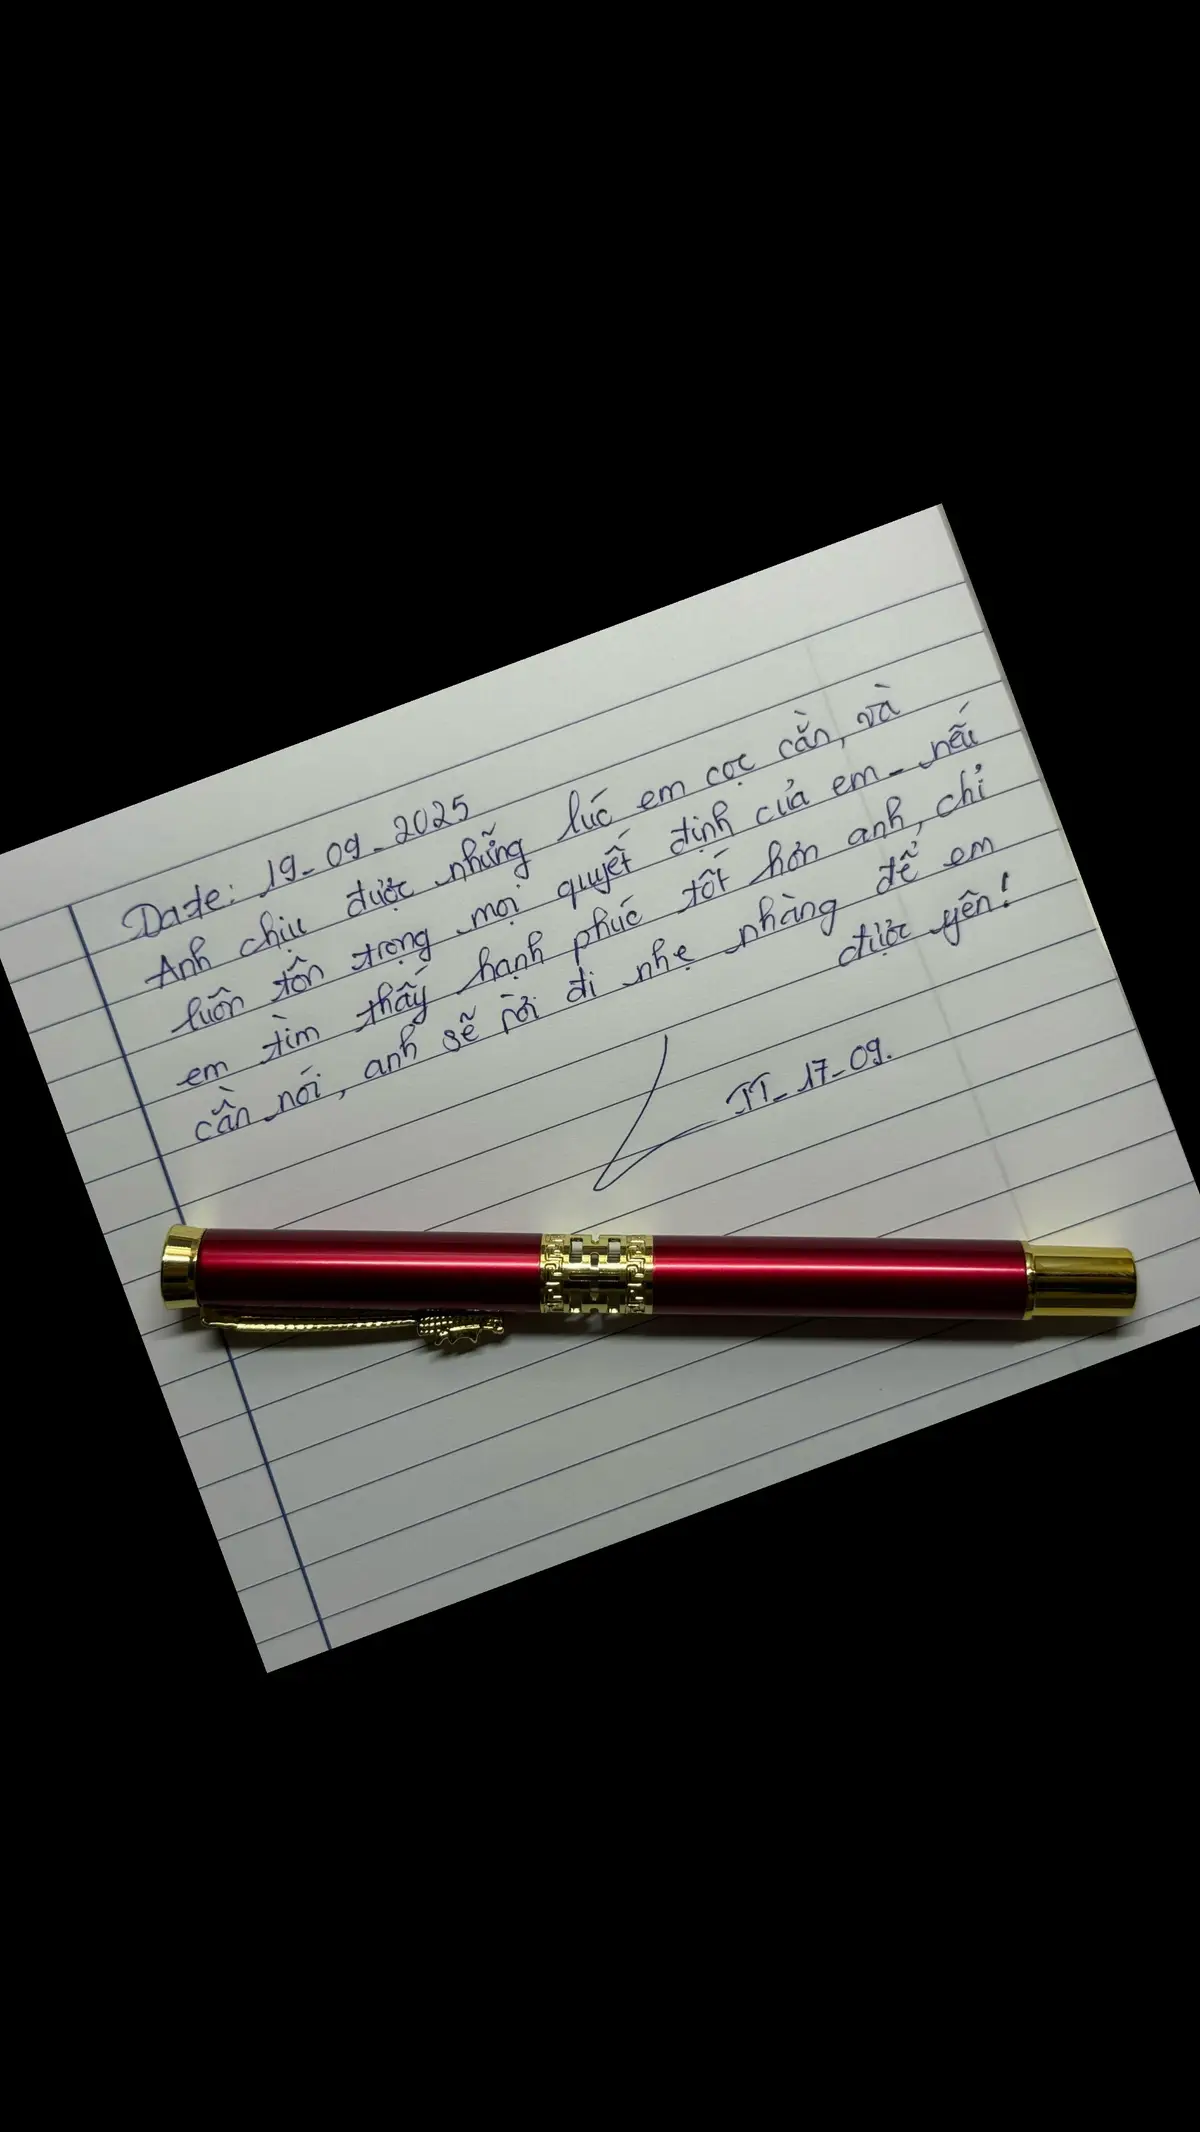 Date: 19-09-2025
Anh chịu được những lúc em cọc cằn, và
luôn tôn trọng mọi quyết định của em - nếu
em tìm thấy hạnh phúc tốt hơn anh, chỉ
cần nói, anh sẽ rời đi nhẹ nhàng để em
được yên!
TT- 17-09.